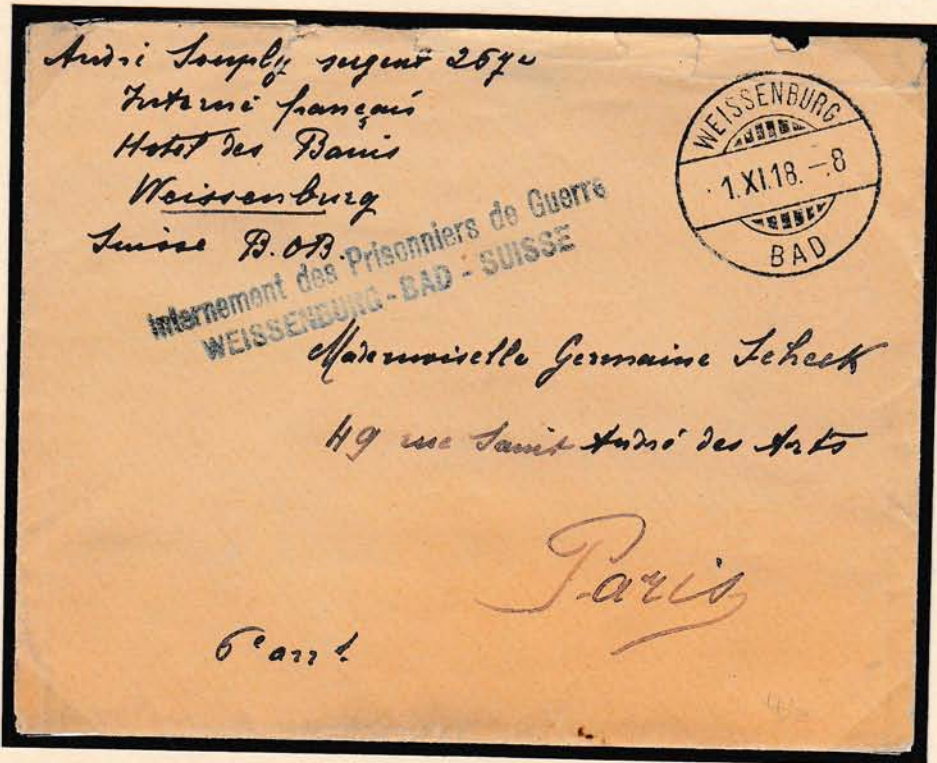 André Souply sergent 267e
Interné français
Hotel des Bains
Weissenburg
Suisse B.OB.
WEISSENBURG
1.XI.18.-8
BAD
Internement des Prisonniers de Guerre
WEISSENBURG - BAD - SUISSE
Mademoiselle Germaine Scheck
49 rue Saint André des Arts
Paris
6e arrt.